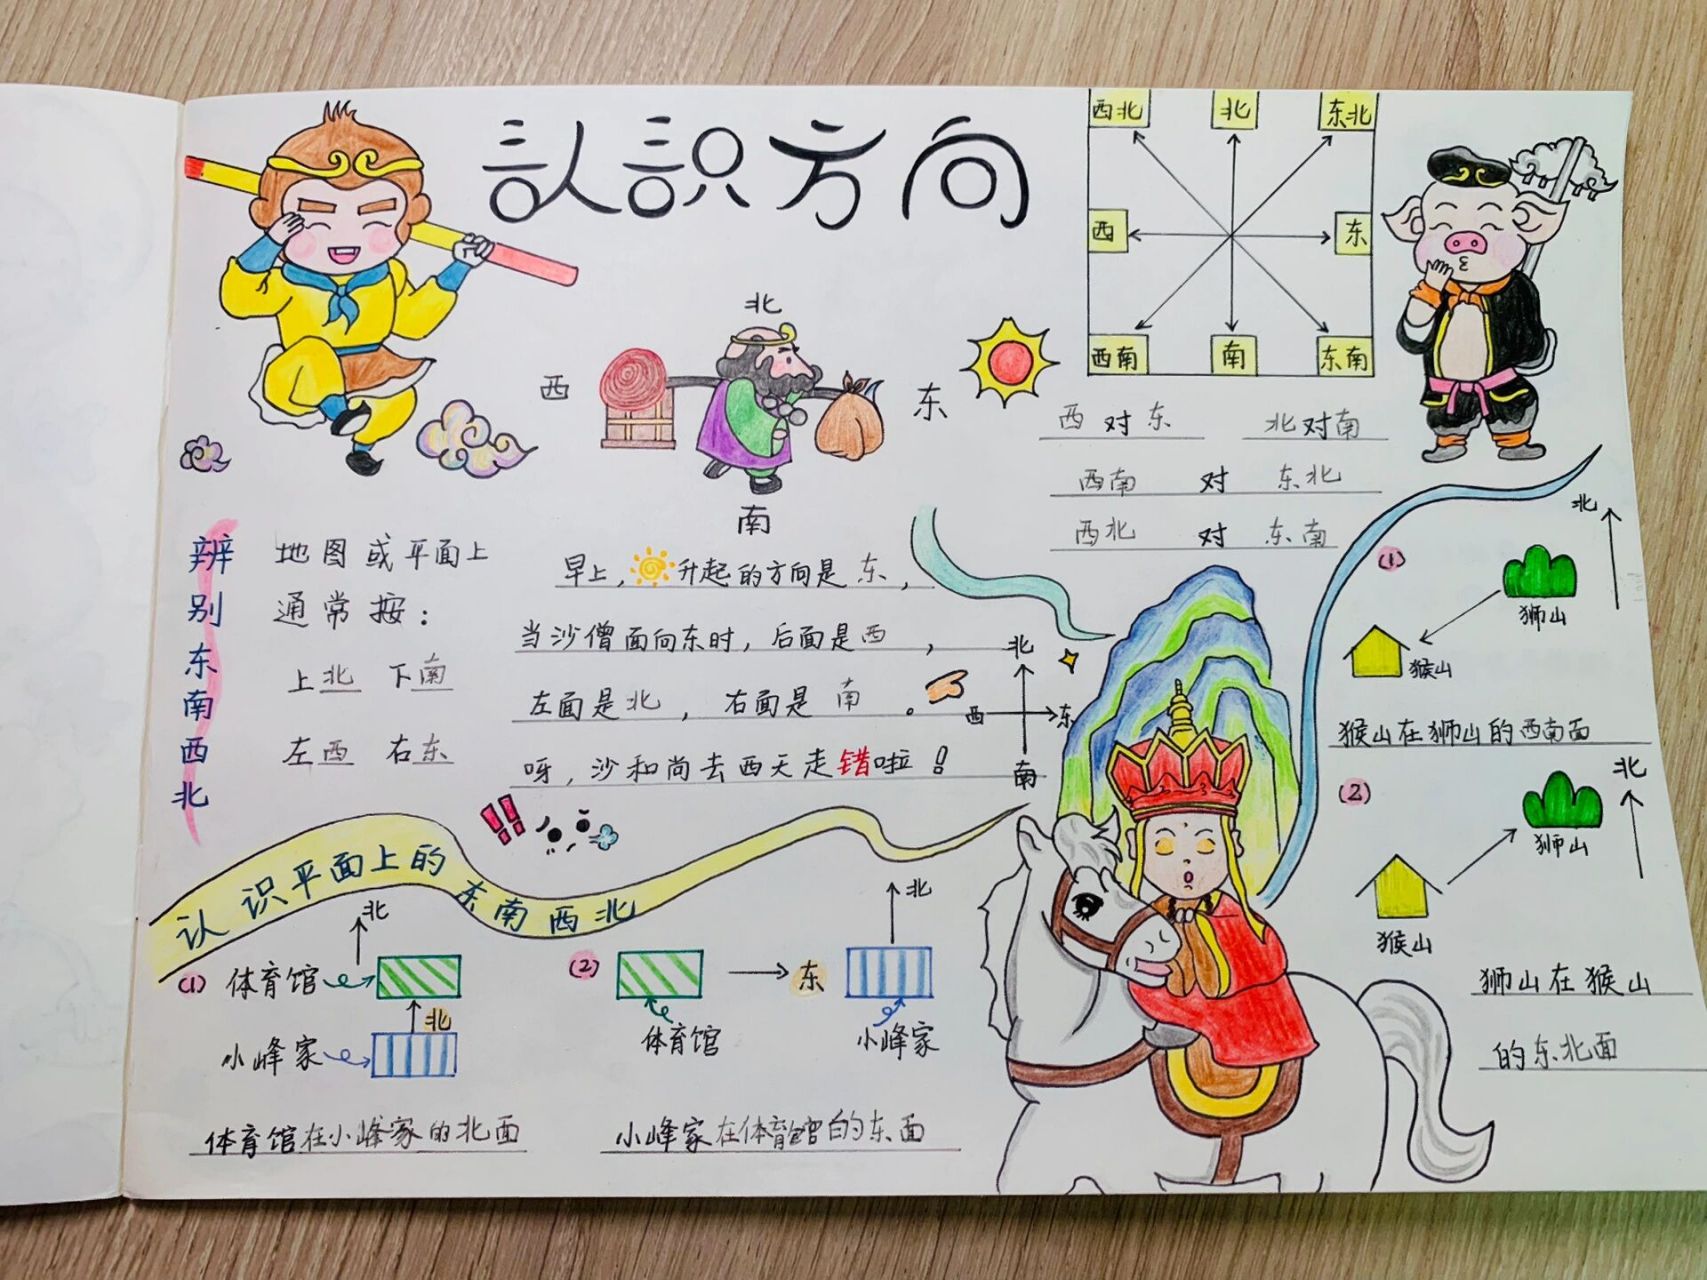 认识方向
西北 北 东北
西 东
西南 南 东南
北
西 东
南
西 对 东 北对南
西南 对 东北
西北 对 东南
辨别东南西北
地图或平面上
通常按：
上北 下南
左西 右东
早上，升起的方向是 东，
当沙僧面向东时，后面是西，
左面是北，右面是 南。
呀，沙和尚去西天走错啦！
北
西 东
南
认识平面上的东南西北
北
(1) 体育馆
北
小峰家
体育馆在小峰家的北面
(2)
北
东
体育馆
小峰家
小峰家在体育馆的东面
北
(1)
狮山
猴山
猴山在狮山的西南面
北
(2)
狮山
猴山
狮山在猴山
的东北面